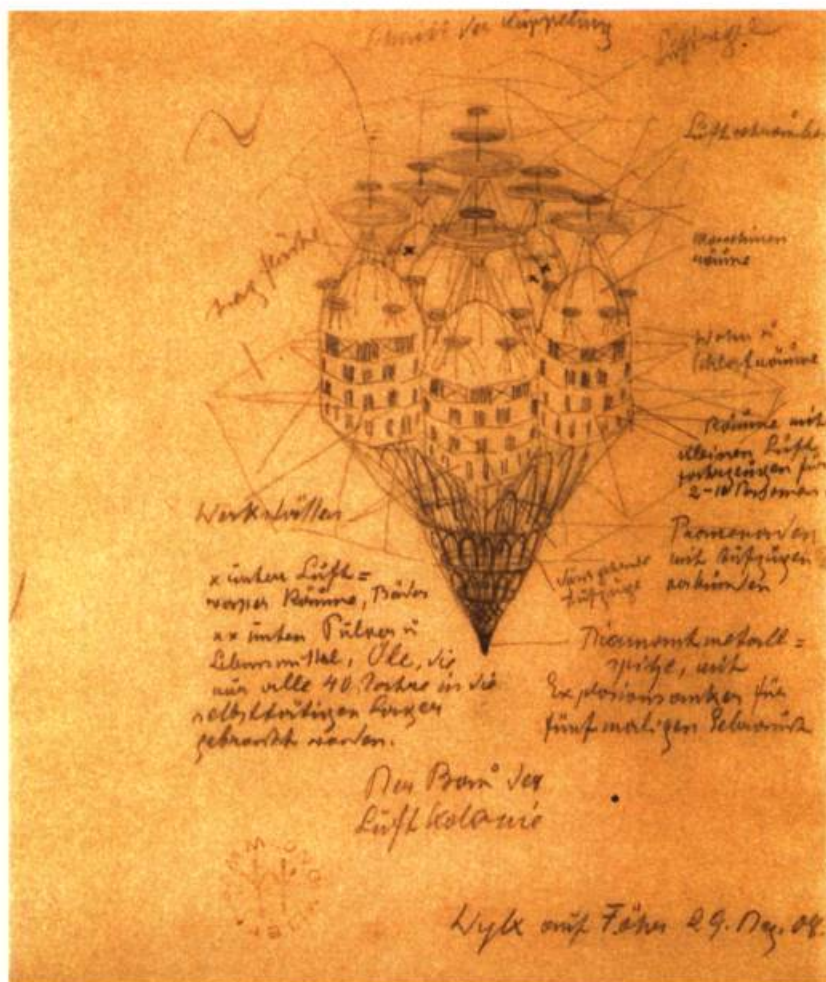 Schnitt der Kuppelung
Luftsegel
Luftschrauben
Maschinen
räume
Tragfläche
Wohn u
Schlafräume
Räume mit
kleinen Luft
fahrzeugen für
2-10 Personen
Werkstätten
Promenaden
mit Aufzügen
verbunden
Aufzüge
x unten Luft=
Räume, Bäder
xx unten Pulver u
Lebensmittel, Öle, die
nur alle 40 Jahre in die
selbsttätigen Lager
gebracht werden.
Diamantmetall=
spitze, mit
Explosionsanker für
fünfmaligen Gebrauch
Der Bau der
Luft Kolonie
Wyk auf Föhr 29. Dez. 08.